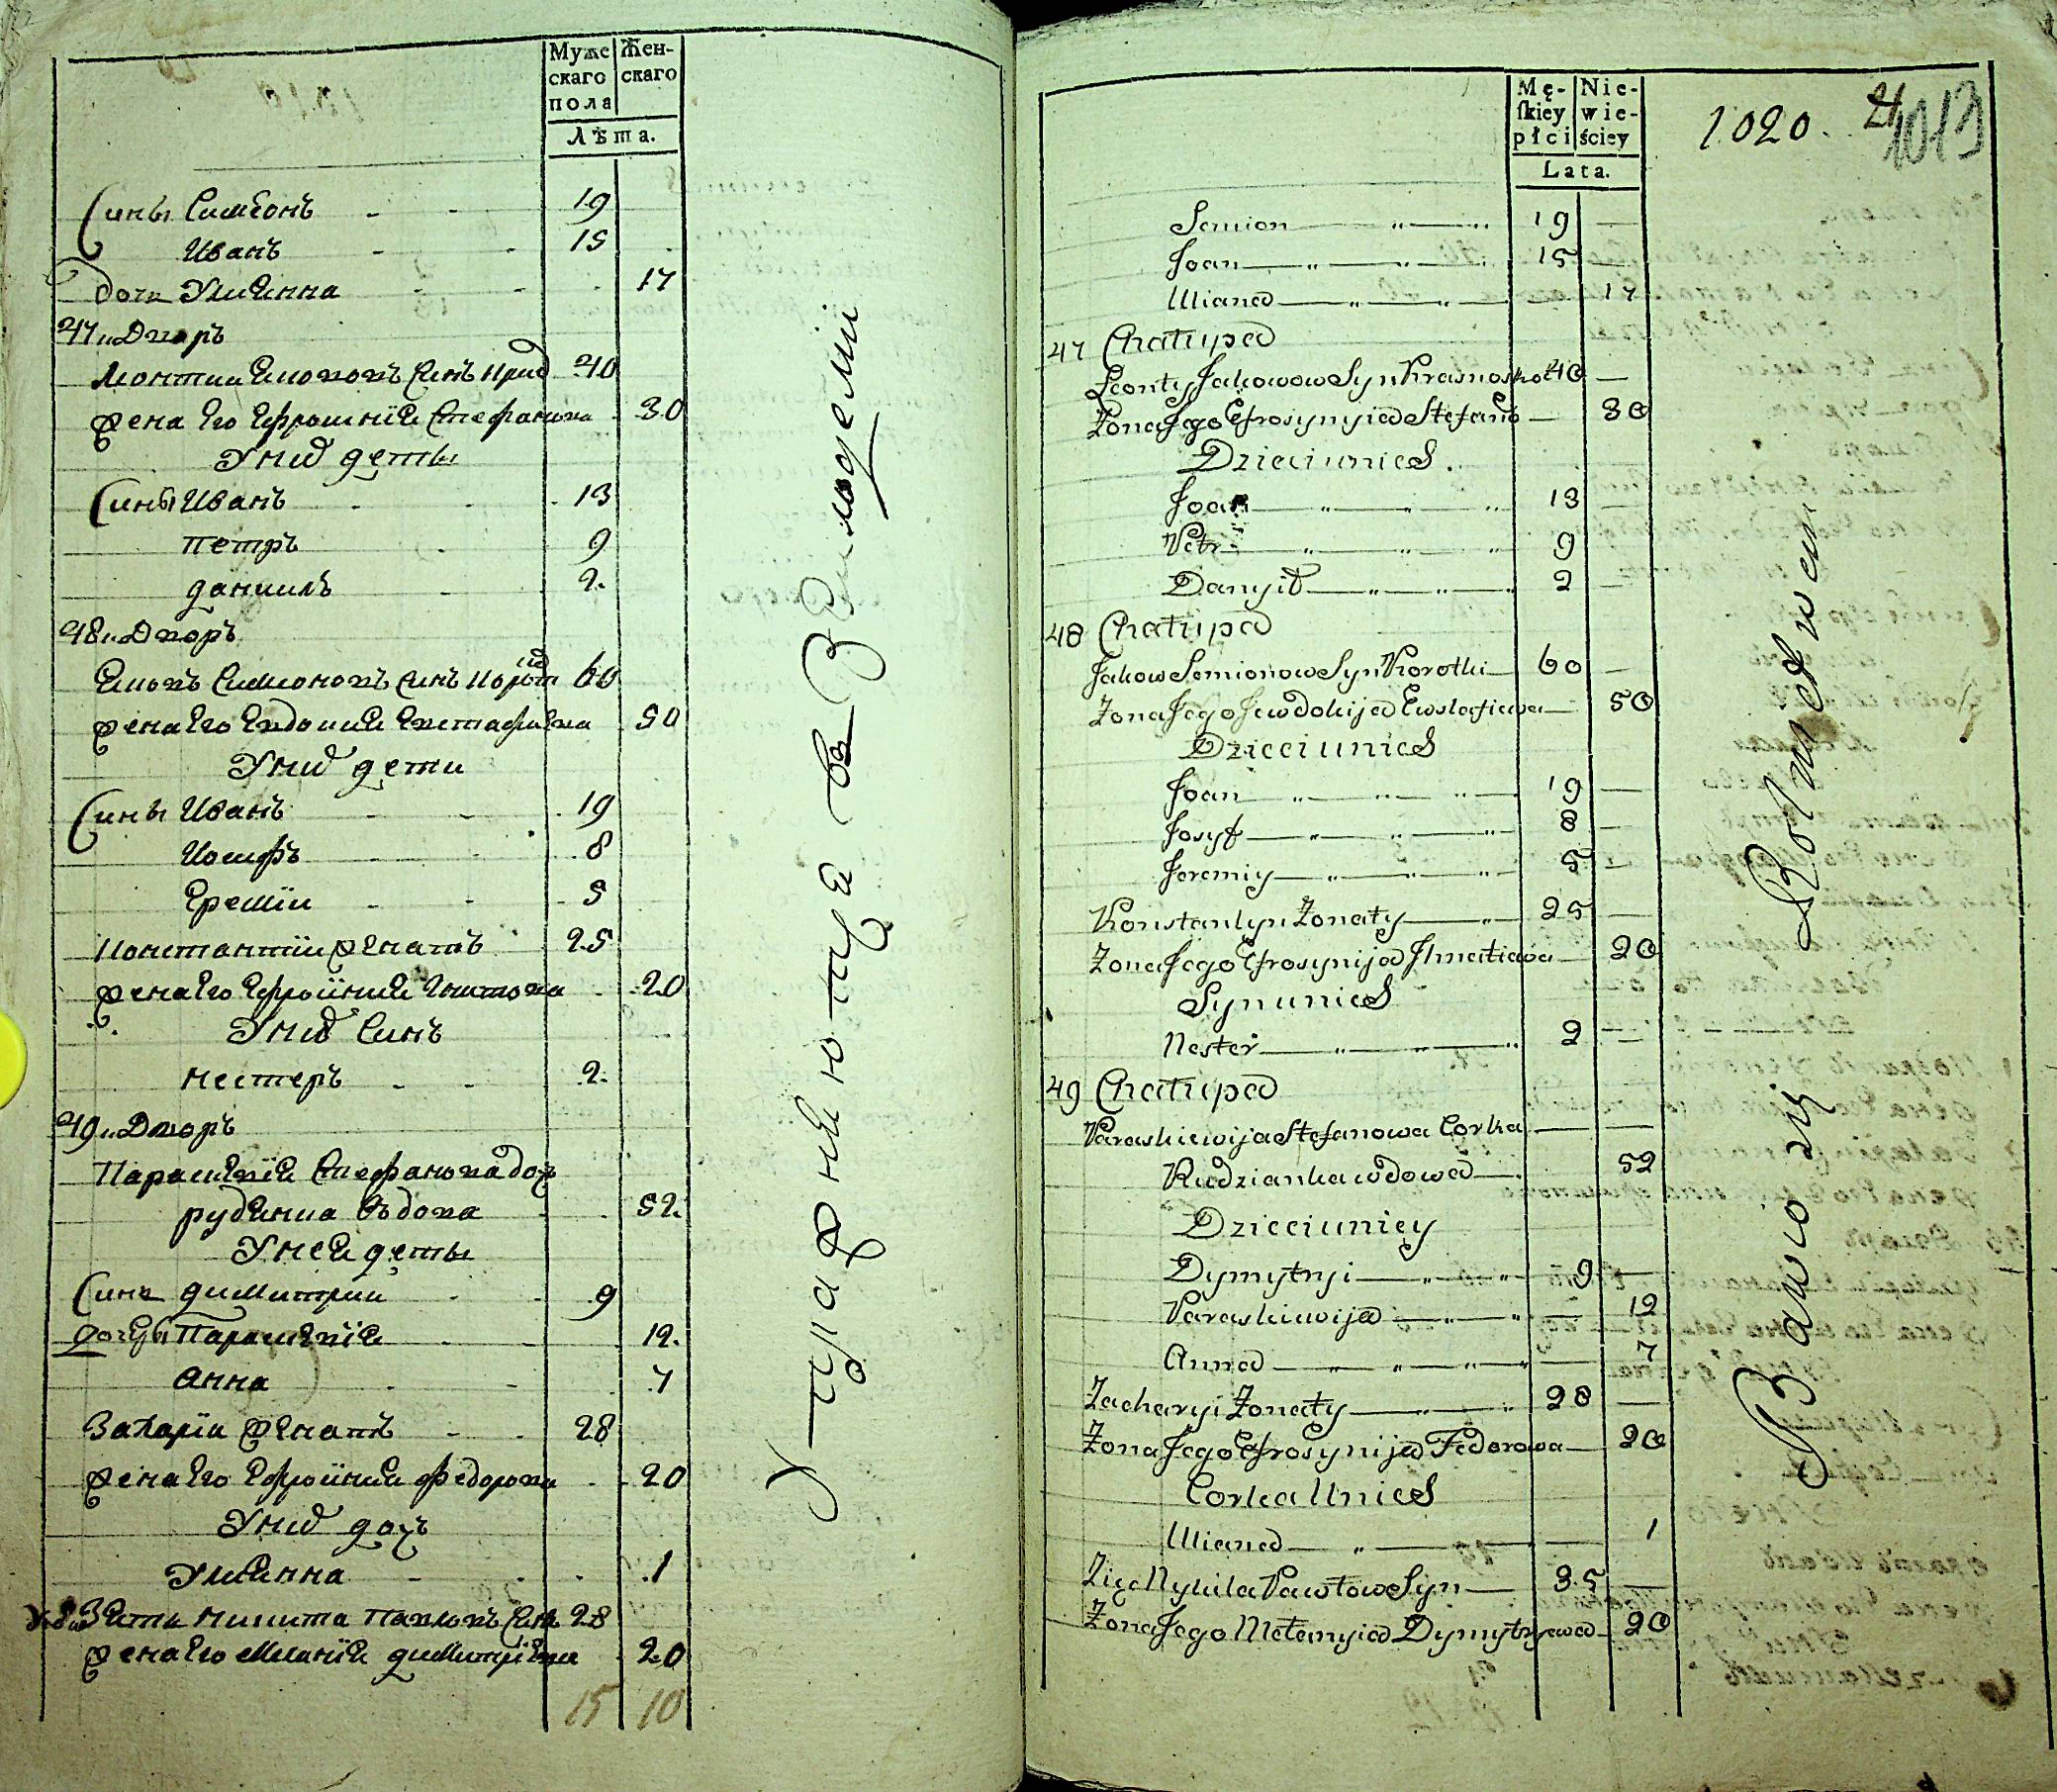 Муже
скаго
пола
Жен-
скаго
Лѣта.
Сины Симеонъ - - 19
Иванъ - - 15
дочь Улиянна - - 17
47 Дворъ
Леонтий Якововъ синъ 40
жена Его Ефросиния Стефанова 30
У них дети
Сины Иванъ 13
Петръ 9
Даниилъ 2.
48 Дворъ
Яковъ Симионовъ синъ 60
жена Его Евдокия Евстафиева 50
У них дети
Сины Иванъ 19
Иосифъ 8
Еремїи 5
Константїи женатъ 25
жена Его Ефросиния 20
У них Синъ
Нестеръ 2.
49 Дворъ
Параскевїя Стефанова доч
вдова 52.
У ней дети
Синъ Димитрии 9
Дочери Параскевїя 12.
Анна 7
Захарїи женатъ 28
жена Его Ефросиния Федорова 20
У них доч
Улиянна 1
Зять Никита Павловъ Синъ 28
жена Его Меланїя Димитриева 20
15 10
въ Володеми
Mę-
ſkiey
płci
Nie-
wie-
ściey
Lata.
1020. 21
1013
Semion 19
Joan 15
Uliana 17
47 Chałupa
Leonty Jakowow Syn 40
Zona Jego Efrosynyia Stefano 30
Dzieci u nich.
Joan 13
Petr 9
Danyił 2
48 Chałupa
Jakow Semionow Syn Korotki 60
Zona Jego Jewdokija Ewstafiewa 50
Dzieci u nich
Joan 19
Josyf 8
Jeremiy 5
Konstantyn Zonaty 25
Zona Jego Efrosynija 20
Syn u nich
Nester 2
49 Chałupa
Paraskiewija Stefanowa Corka
Rudzianka wdowa 52
Dzieci u niey
Dymytryi 9
Paraskiewija 12
Anna 7
Zacharyi Zonaty 28
Zona Jego Efrosynija Fedorowa 20
Corka U nich
Uliana 1
Zięc Nykita Pawłow Syn 35
Zona Jego Metanyia Dymytryewa 20